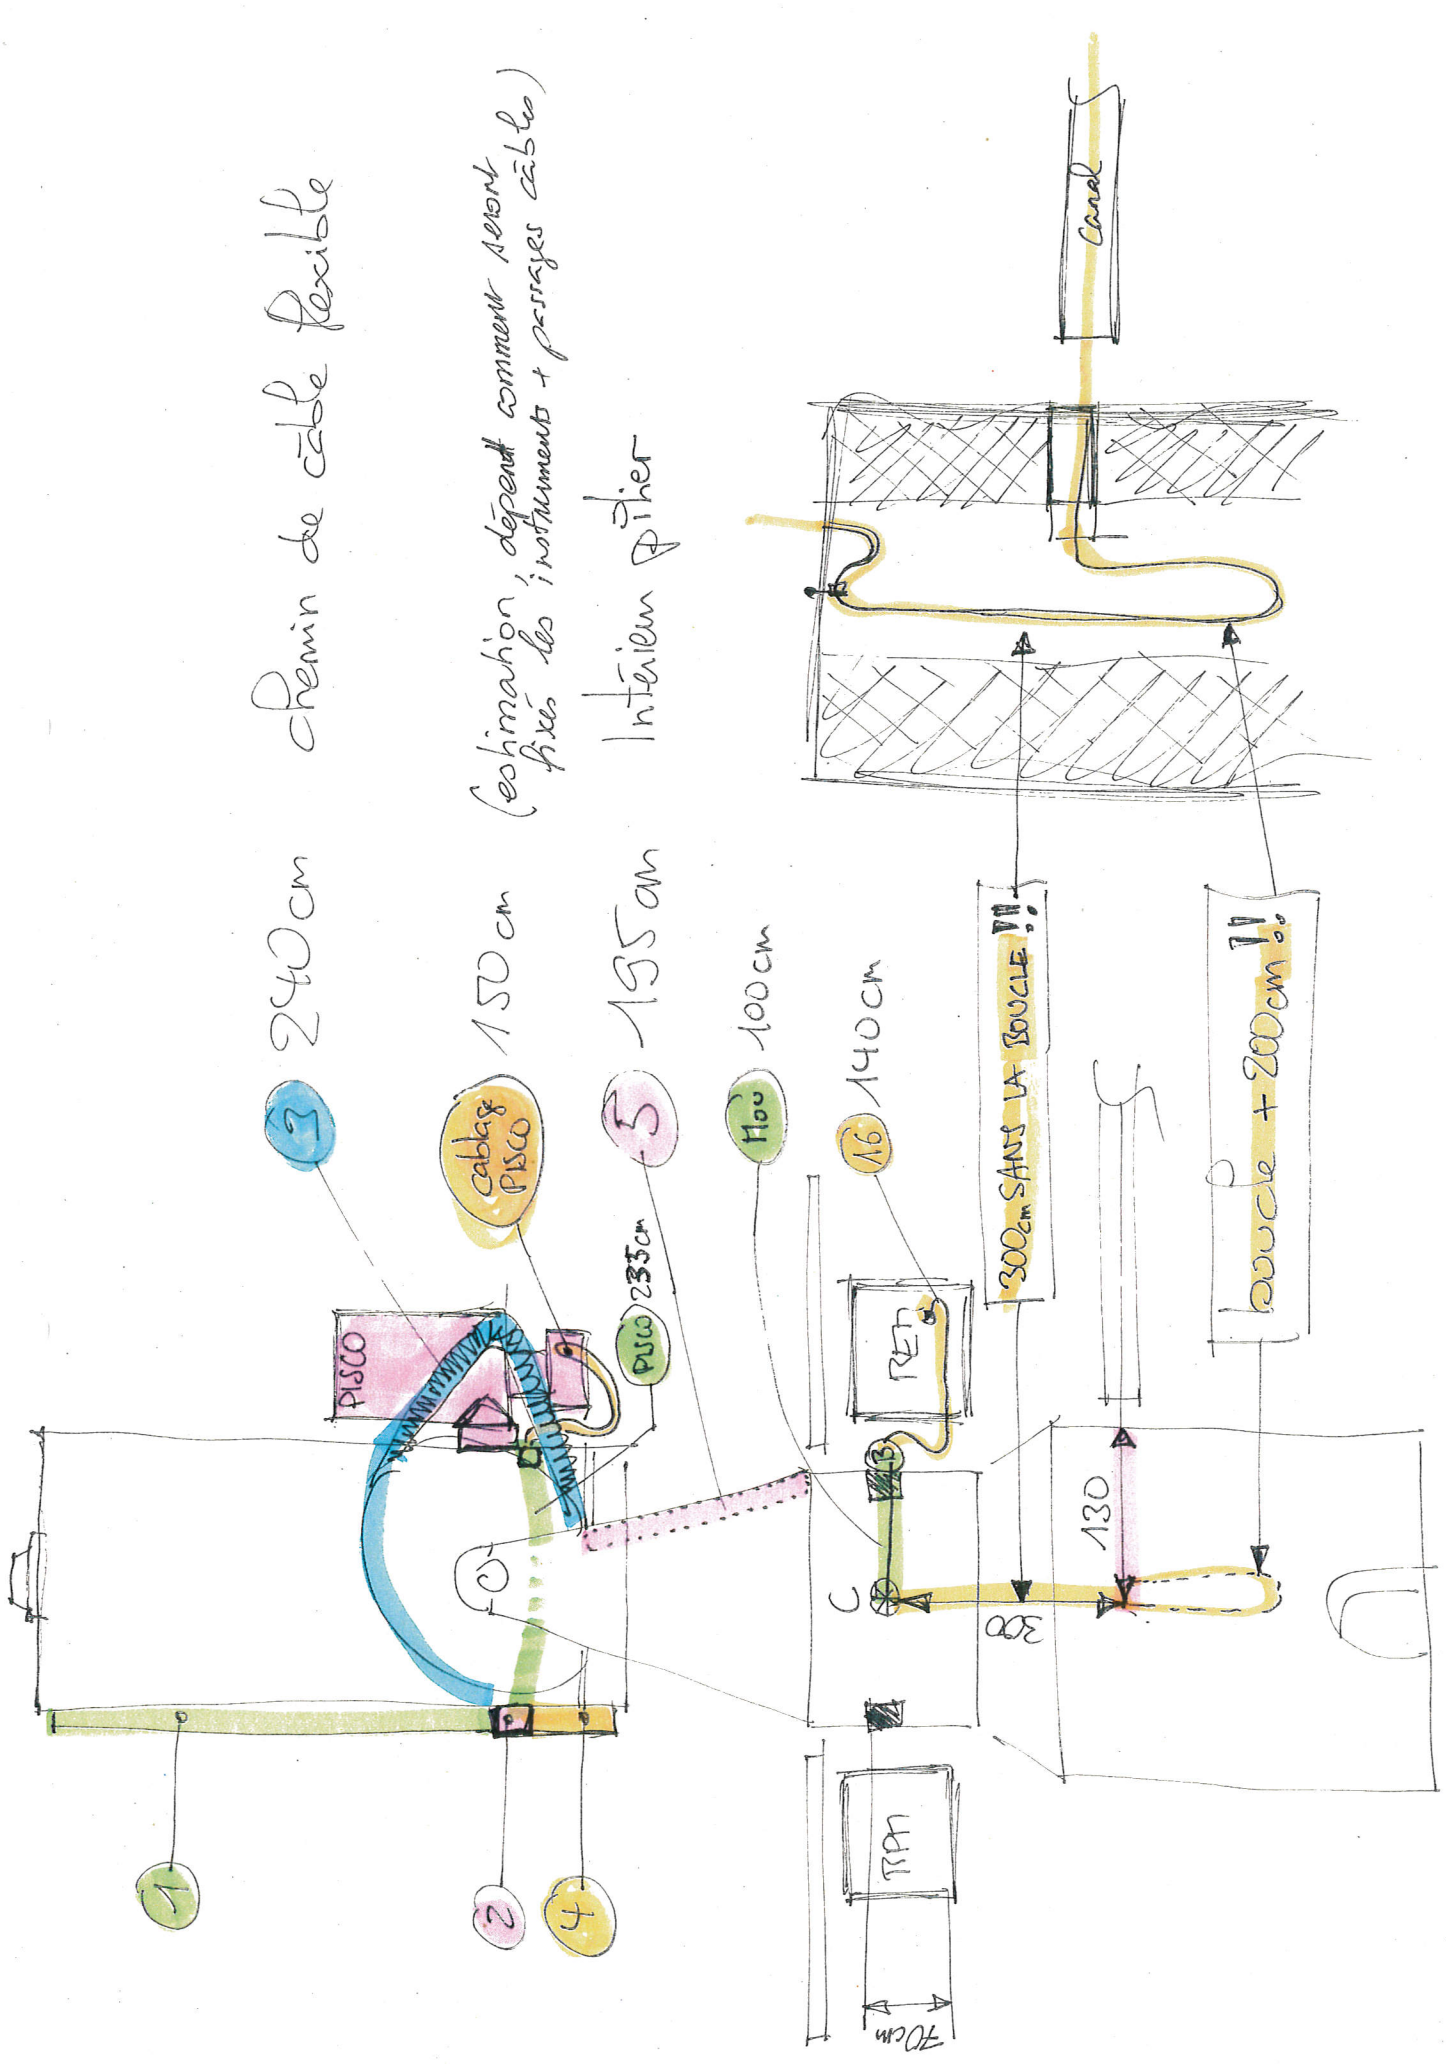 3 240cm chemin de câble flexible
cablage
PISCO
150cm (estimation, dépent comment seront
fixés les instruments + passages câbles)
5 195cm Intérieur pilier
Mou 100cm
16 140cm
PISCO
PISCO 235cm
1
2
4
C
B
REM
70cm
300
130
300cm SANS LA BOUCLE !!!
boucle + 200cm !!
canal